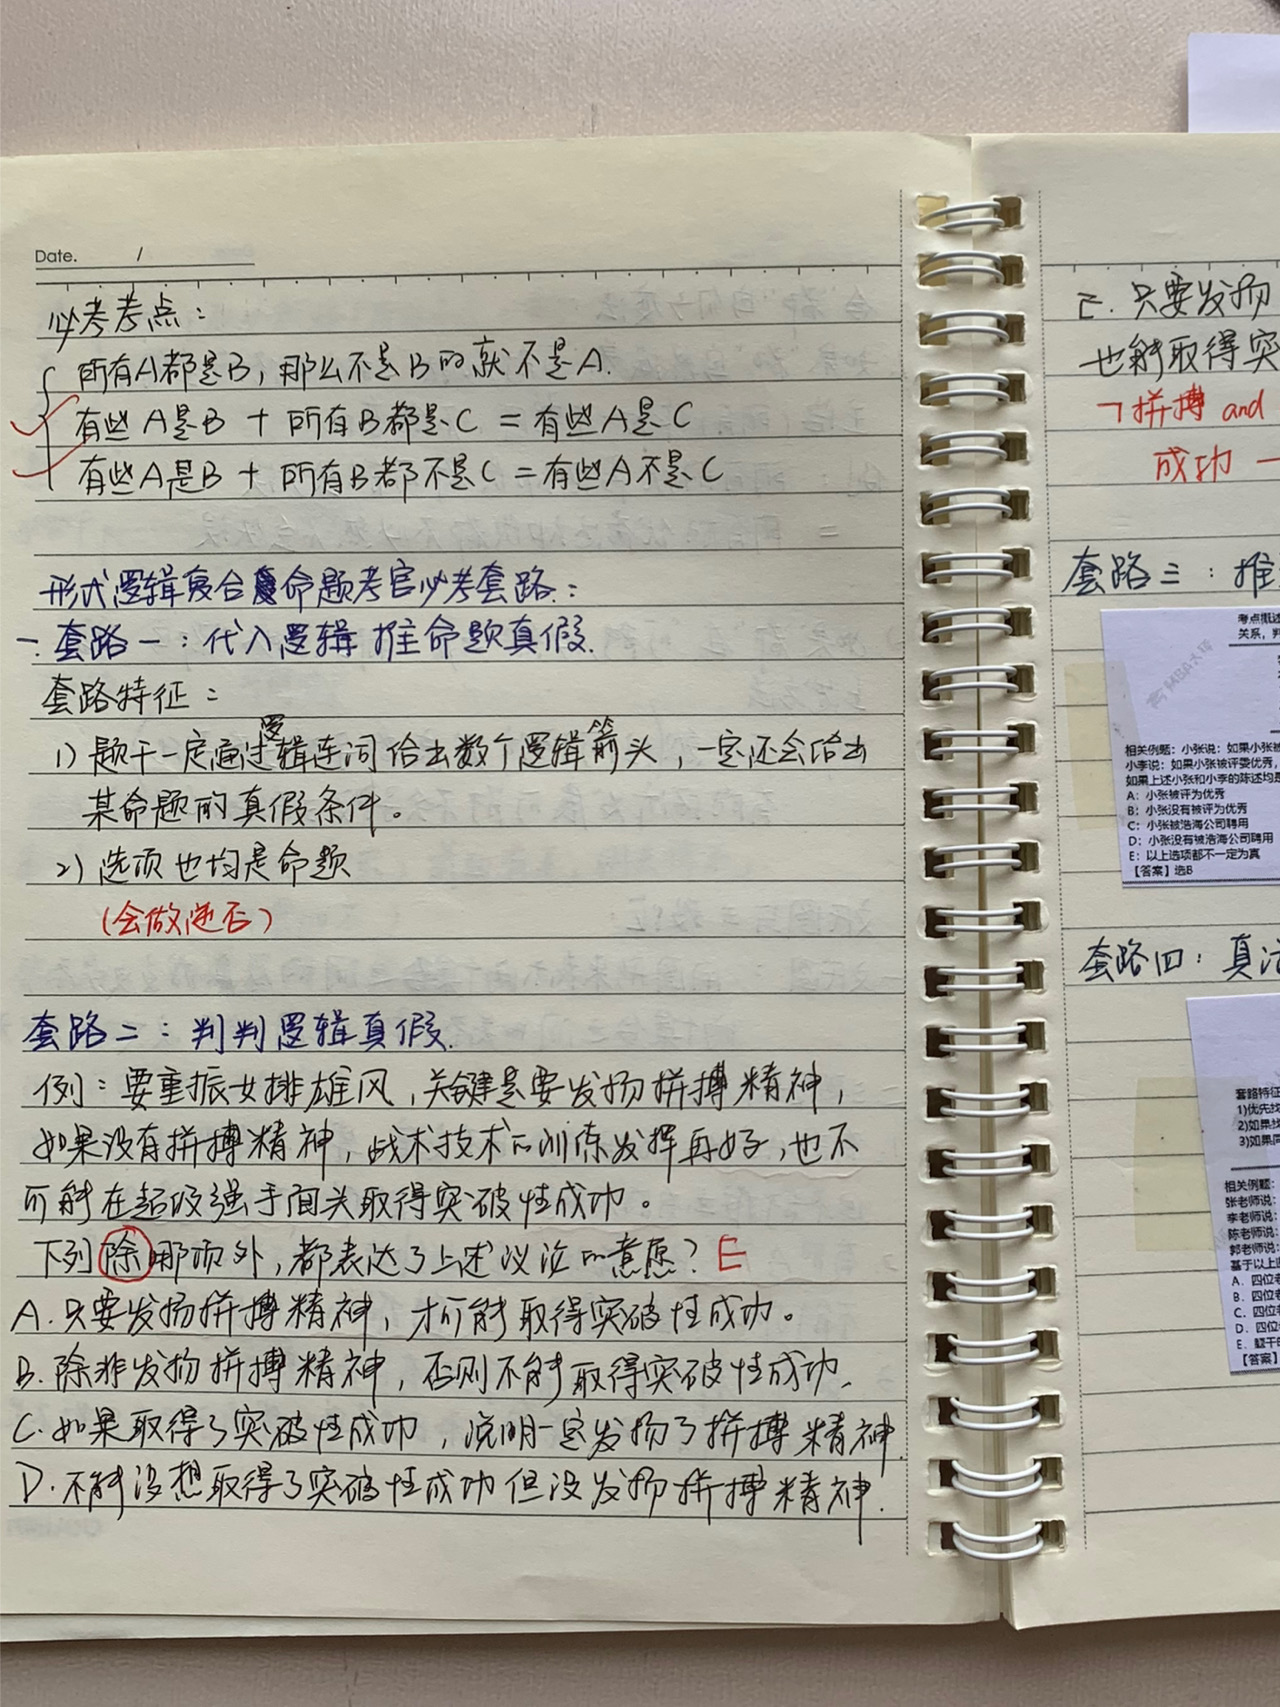 Date. /
必考考点：
所有A都是B，那么不是B的就不是A.
有些A是B + 所有B都是C = 有些A是C
有些A是B + 所有B都不是C = 有些A不是C
形式逻辑复合命题考官必考套路：
一. 套路一：代入逻辑 推命题真假.
套路特征：
1) 题干一定通过逻辑连词给出数个逻辑箭头，一定还会给出
某命题的真假条件。
2) 选项也均是命题
(会做逆否)
套路二：判判逻辑真假.
例：要重振女排雄风，关键是要发扬拼搏精神，
如果没有拼搏精神，战术技术的训练发挥再好，也不
可能在超级强手面头取得突破性成功。
下列除哪项外，都表达了上述议论的意愿？E
A. 只要发扬拼搏精神，才可能取得突破性成功。
B. 除非发扬拼搏精神，否则不能取得突破性成功.
C. 如果取得了突破性成功，说明一定发扬了拼搏精神.
D. 不能设想取得了突破性成功但没发扬拼搏精神.
E. 只要发扬
也能取得突
¬拼搏 and
成功 —
套路三：推
考点概述
关系，判
相关例题：小张说：如果小张被
小李说：如果小张被评委优秀，
如果上述小张和小李的陈述均是
A：小张被评为优秀
B：小张没有被评为优秀
C：小张被浩海公司聘用
D：小张没有被浩海公司聘用
E：以上选项都不一定为真
【答案】选B
套路四：真
套路特征
1)优先找
2)如果找
3)如果同
相关例题：
张老师说：
李老师说：
陈老师说：
郭老师说：
基于以上
A. 四位老
B. 四位老
C. 四位老
D. 四位老
E. 题干
【答案】